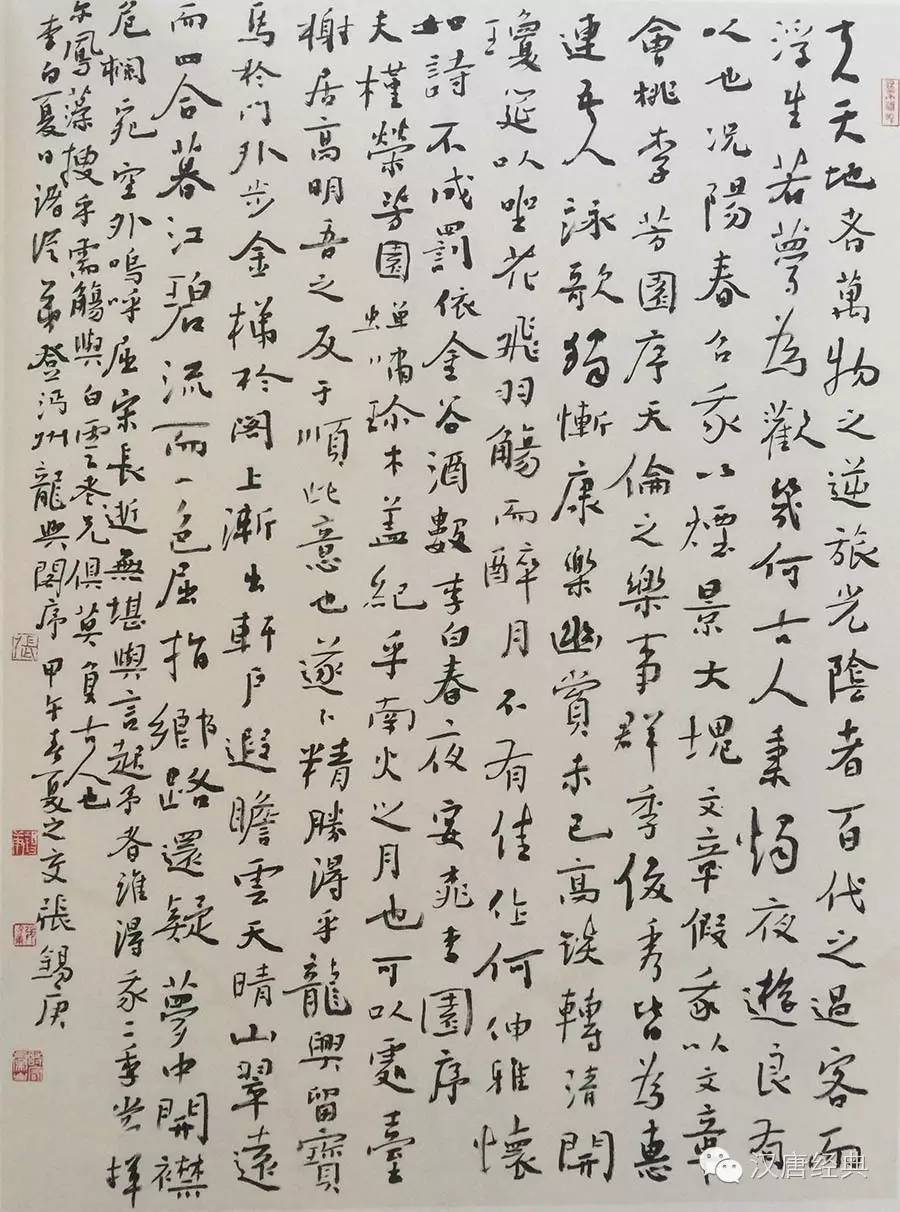 夫天地者萬物之逆旅光陰者百代之過客而
浮生若夢為歡幾何古人秉燭夜遊良有
以也况陽春召我以煙景大塊文章假我以文章
會桃李芳園序天倫之樂事群季俊秀皆為惠
連吾人詠歌獨慚康樂幽賞未已高談轉清開
瓊筵以坐花飛羽觴而醉月不有佳作何伸雅懷
如詩不成罰依金谷酒數李白春夜宴桃李園序
夫槿榮芳園蟬嘯珍木盖紀乎南火之月也可以處臺
榭居高明吾之友于順此意也遂卜精勝得乎龍興留寶
馬於門外步金梯於閣上漸出軒戶遐瞻雲天晴山翠遠
而四合暮江碧流而一色屈指鄉路還疑夢中開襟
危欄宛空外嗚呼屈宋長逝無堪與言起予者誰得我二季當揮
尔鳳藻搜乎需觴與白雲老兄俱莫負古人也
李白夏日諸從弟登沔州龍興閣序 甲午春夏之交張錫庚
汉唐经典